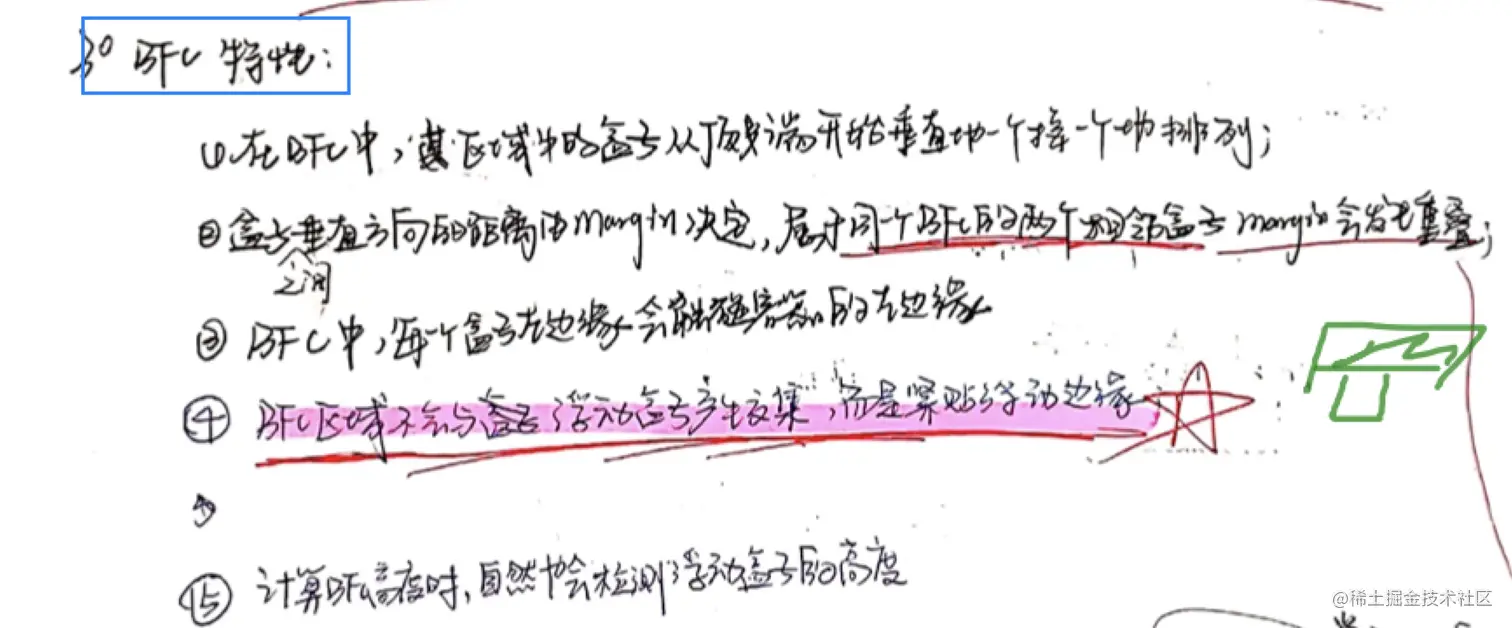 3° BFC 特性：
① 在BFC中，其区域中的盒子从顶端开始垂直地一个接一个地排列；
② 盒子之间垂直方向的距离由margin决定，属于同一个BFC的两个相邻盒子margin会发生重叠；
③ BFC中，每一个盒子左边缘会触碰容器的左边缘
④ BFC区域不会与浮动盒子产生交集，而是紧贴浮动边缘
⑤ 计算BFC高度时，自然也会检测浮动盒子的高度
@稀土掘金技术社区